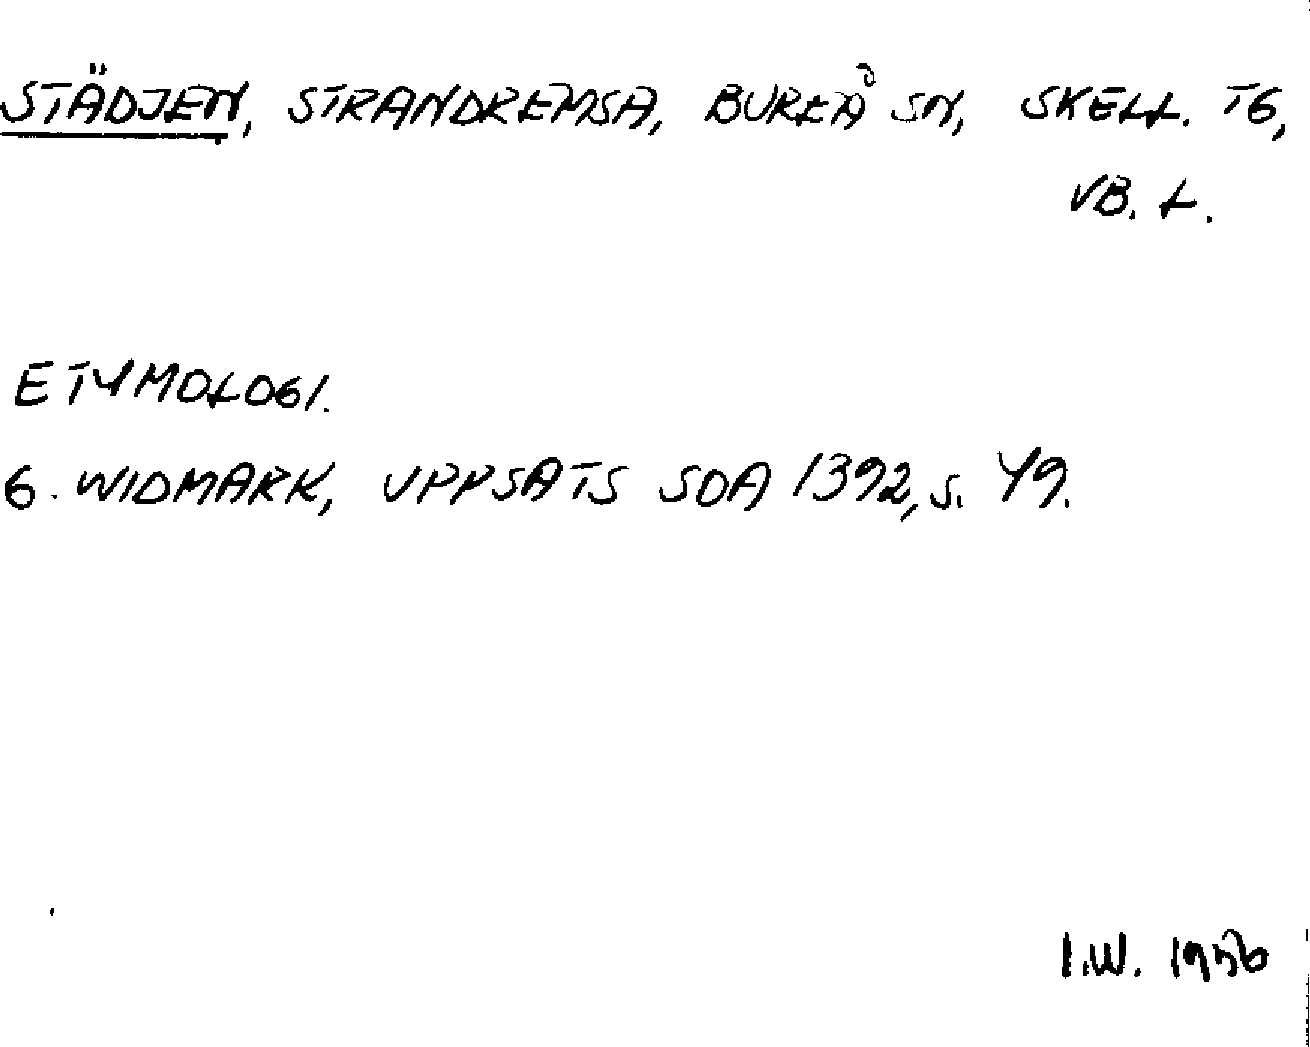 STÄDJEN, STRANDREMSA, BUREÅ SN, SKELL. TG,
VB. L.
ETYMOLOGI.
G. WIDMARK, UPPSATS SOA 1392, s. 49.
I.W. 1956